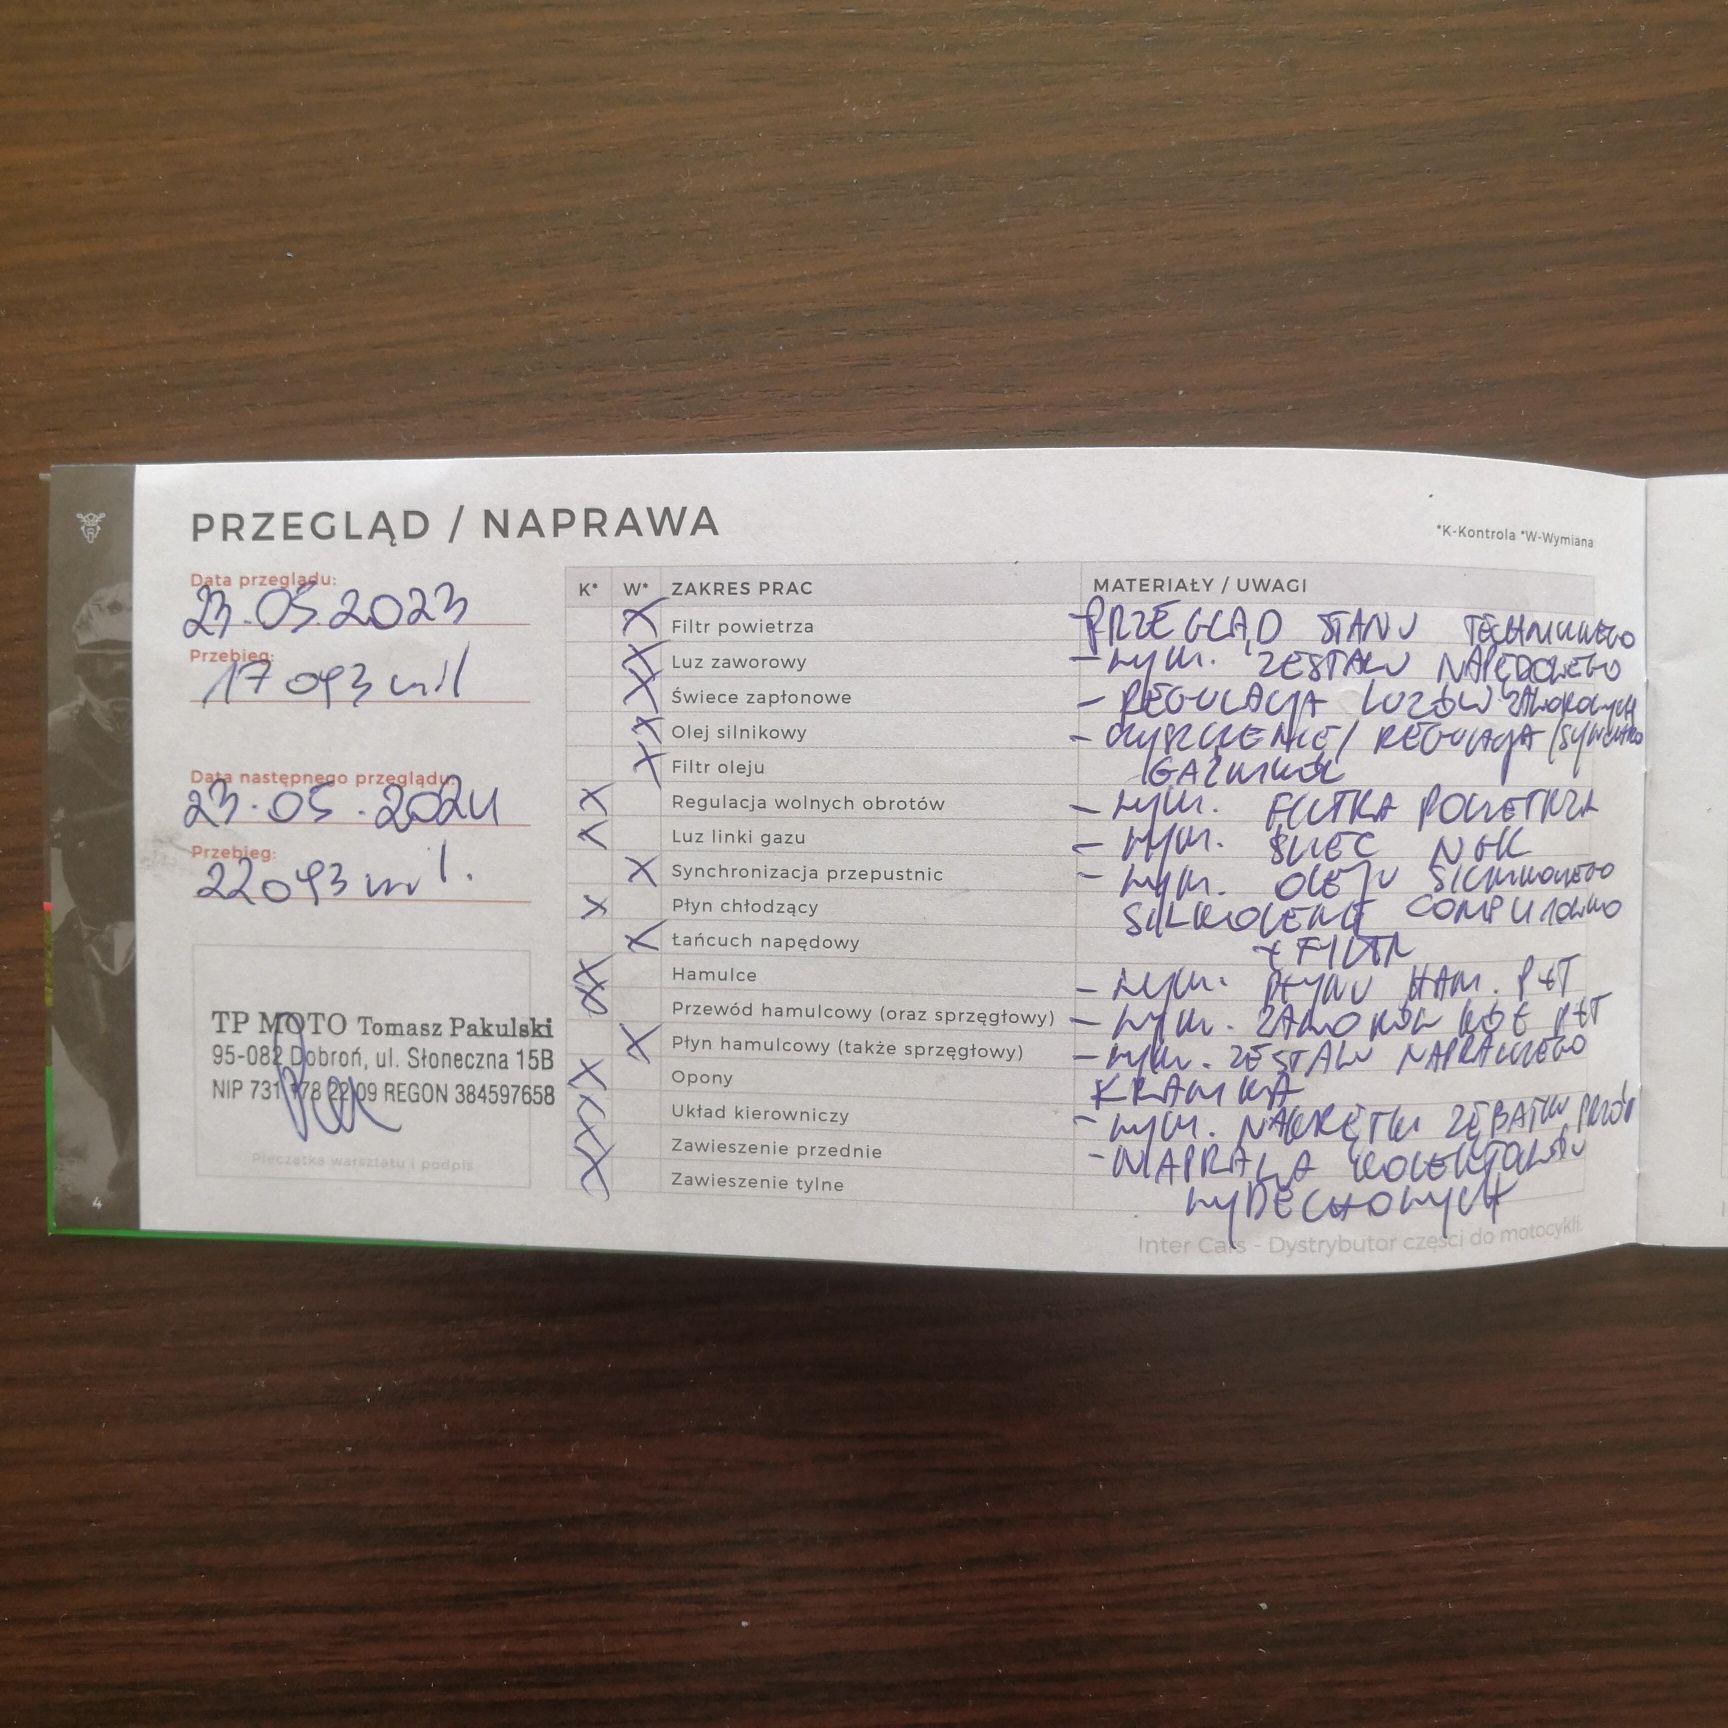 PRZEGLĄD / NAPRAWA
*K-Kontrola *W-Wymiana
Data przeglądu:
23.05.2023
Przebieg:
17093 mil
Data następnego przeglądu:
23.05.2024
Przebieg:
22093 mil.
TP MOTO Tomasz Pakulski
95-082 Dobroń, ul. Słoneczna 15B
NIP 731 178 22 09 REGON 384597658
Pieczątka warsztatu i podpis
4
K* W* ZAKRES PRAC MATERIAŁY / UWAGI
X Filtr powietrza
X Luz zaworowy
X Świece zapłonowe
X Olej silnikowy
X Filtr oleju
X Regulacja wolnych obrotów
X Luz linki gazu
X Synchronizacja przepustnic
X Płyn chłodzący
X Łańcuch napędowy
X Hamulce
X Przewód hamulcowy (oraz sprzęgłowy)
X Płyn hamulcowy (także sprzęgłowy)
X Opony
X Układ kierowniczy
X Zawieszenie przednie
X Zawieszenie tylne
PRZEGLĄD STANU TECHNICZNEGO
- WYM. ZESTAWU NAPĘDOWEGO
- REGULACJA LUZÓW ZAWOROWYCH
- CZYSZCZENIE / REGULACJA /
GAŹNIKÓW
- WYM. FILTRA POWIETRZA
- WYM. ŚWIEC NGK
- WYM. OLEJU SILNIKOWEGO
SILKOLENE COMP 4
+ FILTR
- WYM. PŁYNU HAM. P+T
- WYM. ZAWORÓW KÓŁ P+T
- WYM. ZESTAWU NAPRAWCZEGO
KRANIKA
- WYM. NAKRĘTKI ZĘBATKI PRZÓD
- NAPRAWA KOLEKTORÓW
WYDECHOWYCH
Inter Cars - Dystrybutor części do motocykli.